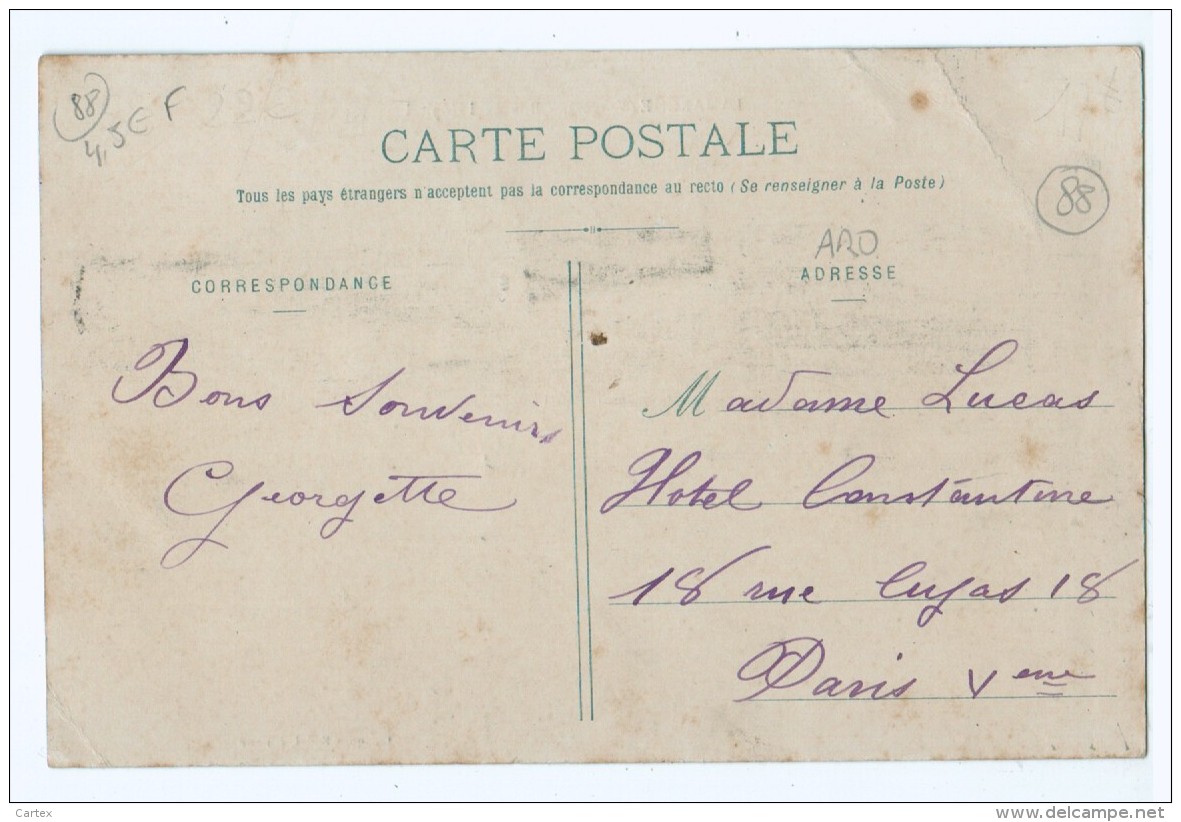 88
4,5€ F
CARTE POSTALE
Tous les pays étrangers n'acceptent pas la correspondance au recto (Se renseigner à la Poste)
88
ARD
CORRESPONDANCE
ADRESSE
Bons Souvenirs
Georgette
Madame Lucas
Hotel Constantine
18 rue Cujas 18
Paris Veme
Cartex
www.delcampe.net